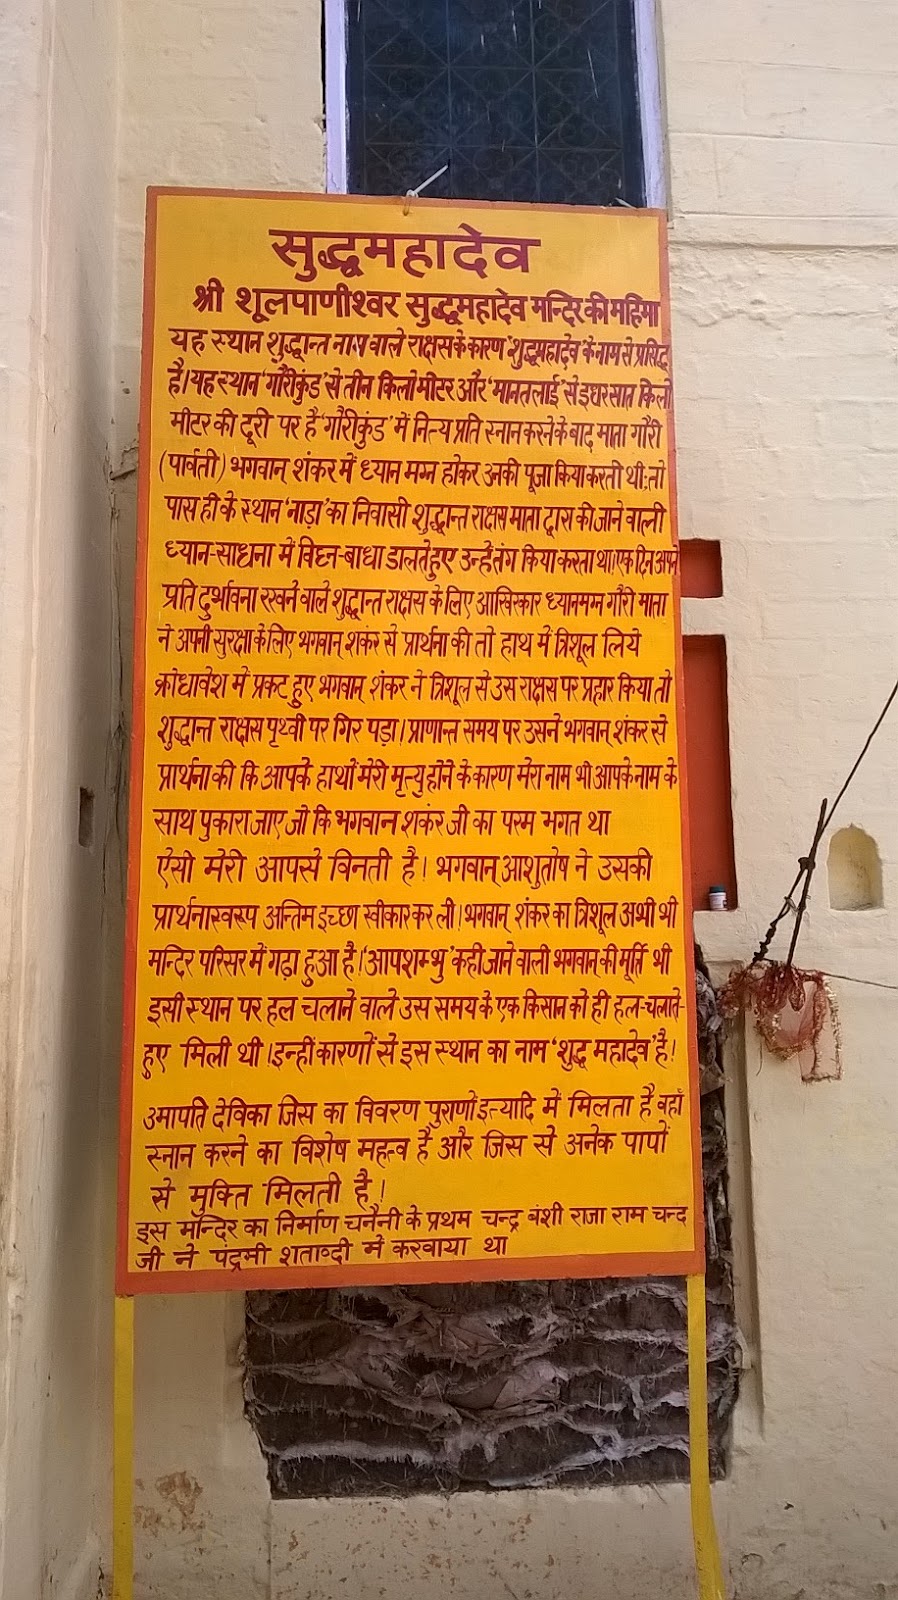 सुद्धमहादेव
श्री शूलपाणीश्वर सुद्धमहादेव मन्दिर की महिमा
यह स्थान शुद्धान्त नाम वाले राक्षस के कारण 'शुद्धमहादेव' के नाम से प्रसिद्ध
है। यह स्थान 'गौरीकुंड' से तीन किलोमीटर और 'मानतलाई' से इधर सात किलो
मीटर की दूरी पर है 'गौरीकुंड' में नित्य प्रति स्नान करने के बाद माता गौरी
(पार्वती) भगवान् शंकर में ध्यान मग्न होकर उनकी पूजा किया करती थी: तो
पास ही के स्थान 'नाड़ा' का निवासी शुद्धान्त राक्षस माता द्वारा की जाने वाली
ध्यान-साधना में विघ्न-बाधा डालते हुए उन्हें तंग किया करता था। एक दिन अपने
प्रति दुर्भावना रखने वाले शुद्धान्त राक्षस के लिए आखिरकार ध्यानमग्न गौरी माता
ने अपनी सुरक्षा के लिए भगवान् शंकर से प्रार्थना की तो हाथ में त्रिशूल लिये
क्रोधावेश में प्रकट हुए भगवान् शंकर ने त्रिशूल से उस राक्षस पर प्रहार किया तो
शुद्धान्त राक्षस पृथ्वी पर गिर पड़ा। प्राणान्त समय पर उसने भगवान् शंकर से
प्रार्थना की कि आपके हाथों मेरी मृत्यु होने के कारण मेरा नाम भी आपके नाम के
साथ पुकारा जाए जो कि भगवान शंकर जी का परम भगत था
ऐसी मेरी आपसे विनती है। भगवान् आशुतोष ने उसकी
प्रार्थनास्वरुप अन्तिम इच्छा स्वीकार कर ली। भगवान् शंकर का त्रिशूल अभी भी
मन्दिर परिसर में गढ़ा हुआ है। 'आपशम्भु' कही जाने वाली भगवान् की मूर्ति भी
इसी स्थान पर हल चलाने वाले उस समय के एक किसान को ही हल-चलाते-
हुए मिली थी। इन्हीं कारणों से इस स्थान का नाम 'शुद्ध महादेव' है।
उमापति देविका जिस का विवरण पुराणों इत्यादि में मिलता है वहाँ
स्नान करने का विशेष महत्व है और जिस से अनेक पापों
से मुक्ति मिलती है।
इस मन्दिर का निर्माण चनैनी के प्रथम चन्द्र बंशी राजा राम चन्द
जी ने पंद्रमी शताब्दी में करवाया था